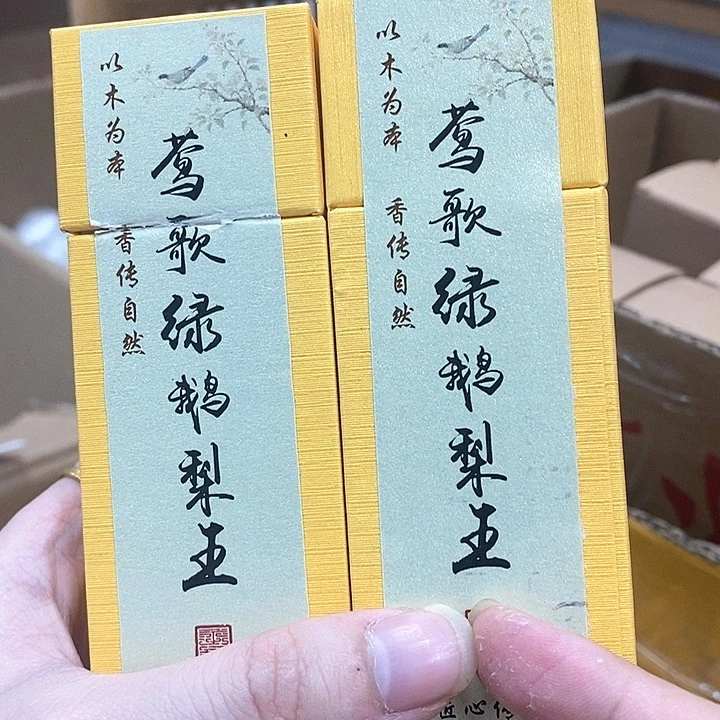 以木为本
香传自然
莺歌绿鹅梨王
以木为本
香传自然
莺歌绿鹅梨王
匠心传